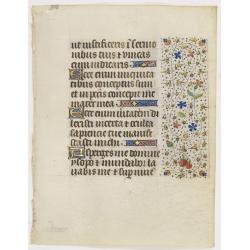 ut iustificeris in sermo
nibus tuis et vincas
cum iudicaris
Ecce enim in iniquita
tibus conceptus sum
et in peccatis concepit me
mater mea
Ecce enim veritatem di
lexisti incerta et occulta
sapiencie tue manife
stasti michi
Asperges me domine
ysopo et mundabor la
vabis me et super nive